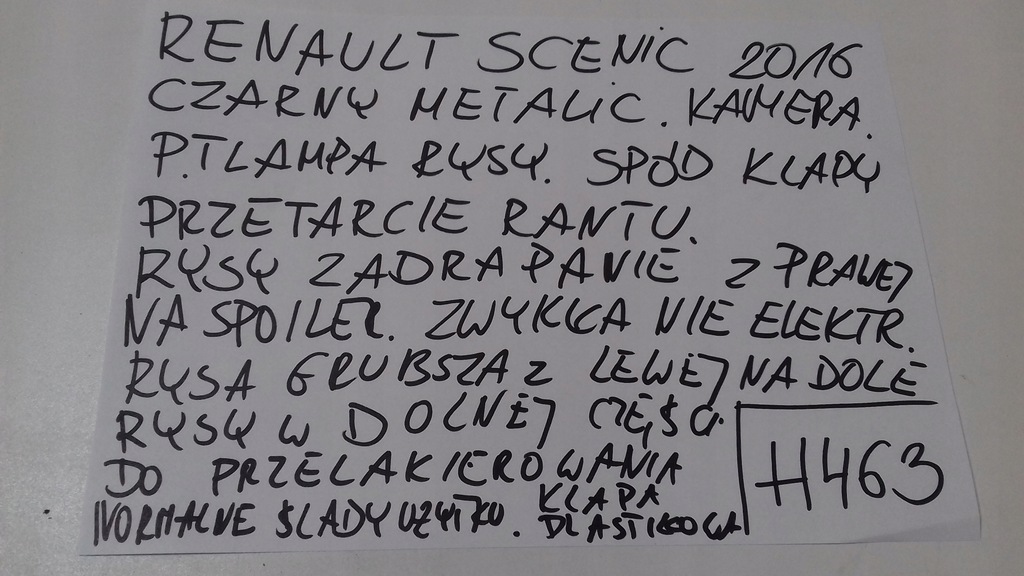 RENAULT SCENIC 2016
CZARNY METALIC. KAMERA.
P.T LAMPA RYSY. SPÓD KLAPY
PRZETARCIE RANTU.
RYSY ZADRAPANIE Z PRAWEJ
NA SPOILER. ZWYKŁA NIE ELEKTR.
RYSA GRUBSZA Z LEWEJ NA DOLE
RYSY W DOLNEJ CZĘŚCI.
DO PRZELAKIEROWANIA
NORMALNE ŚLADY UŻYTKU. KLAPA
PLASTIKOWA
H463